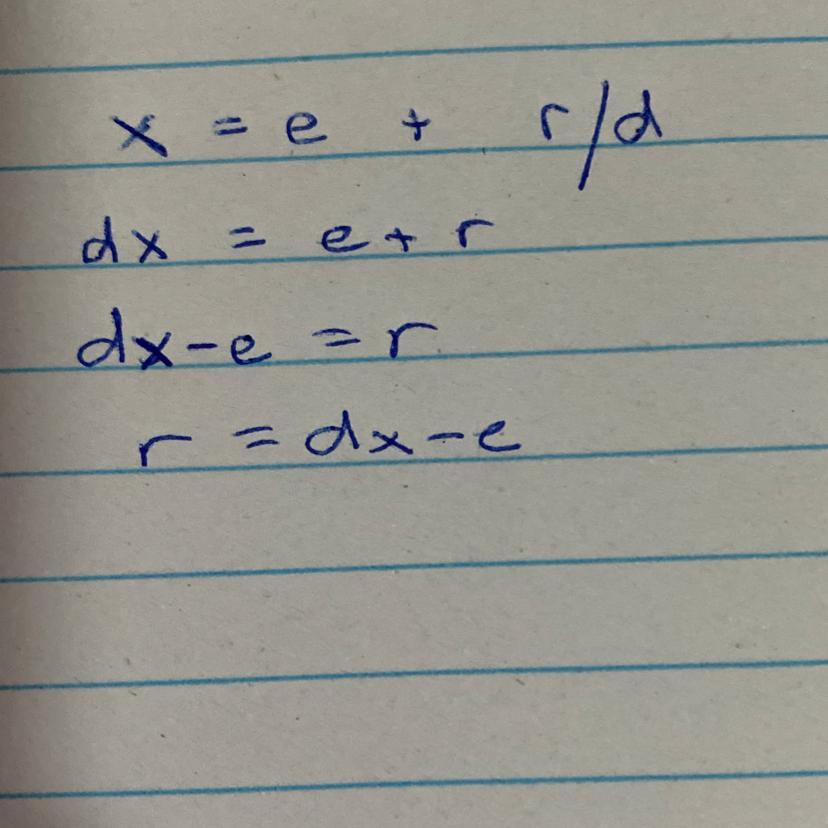 x = e + r/d
dx = e + r
dx - e = r
r = dx - e